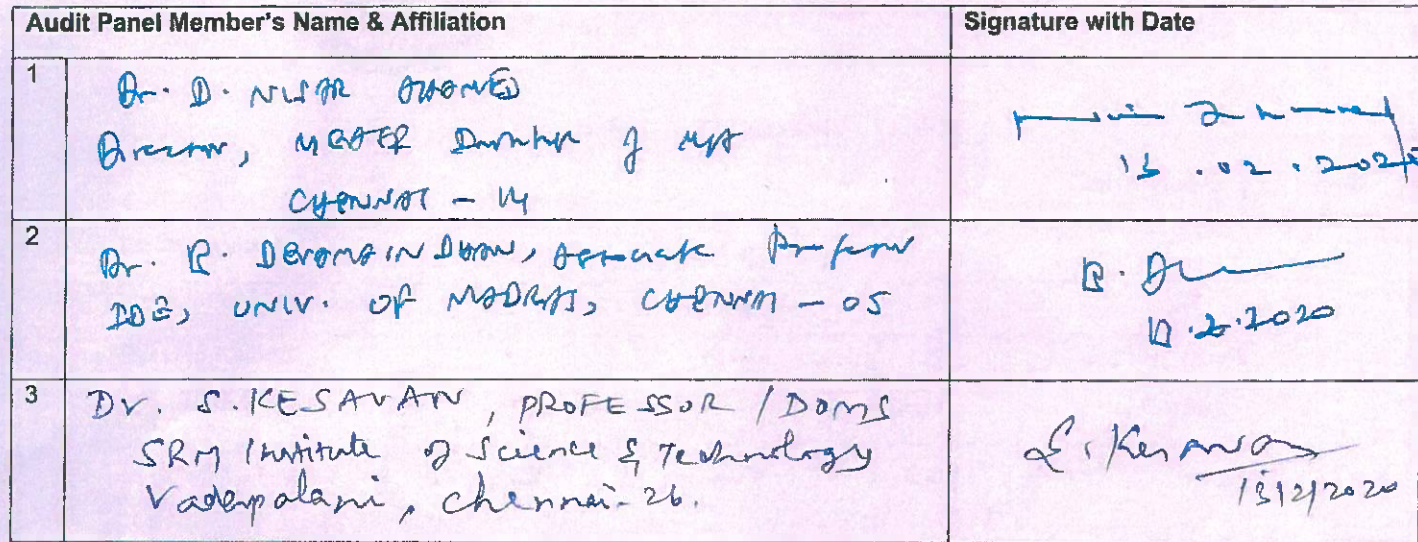 Audit Panel Member's Name & Affiliation
Signature with Date
1
Dr. D. NISAR AHAMED
Director, MEASI Institute of Mgt
CHENNAI - 14
13.02.2020
2
Dr. R. DEVAMAINDHAN, Associate Professor
IDE, UNIV. OF MADRAS, CHENNAI - 05
R.
13.2.2020
3
Dr. S. KESAVAN, PROFESSOR / DOMS
SRM Institute of Science & Technology
Vadapalani, Chennai-26.
S. Kesavan
13/2/2020